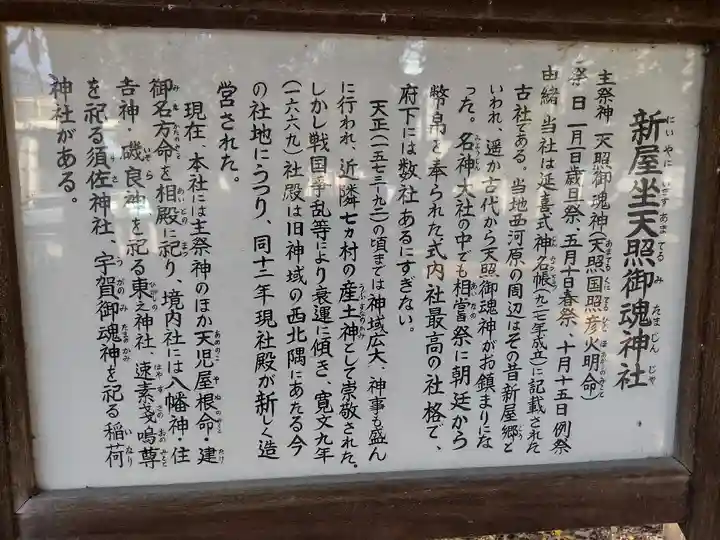 新屋坐天照御魂神社
主祭神 天照御魂神(天照国照彦火明命)
祭 日 一月一日歳旦祭、五月十日春祭、十月十五日例祭
由緒 当社は延喜式神名帳(九二七年成立)に記載された
古社である。当地西河原の周辺はその昔新屋郷と
いわれ、遥か古代から天照御魂神がお鎮まりにな
った。名神大社の中でも相嘗祭に朝廷から
幣帛を奉られた式内社最高の社格で、
府下には数社あるにすぎない。
天正(一五七三-九二)の頃までは神域広大、神事も盛ん
に行われ、近隣七ヵ村の産土神として崇敬された。
しかし戦国争乱等により衰運に傾き、寛文九年
(一六六九)社殿は旧神域の西北隅にあたる今
の社地にうつり、同十二年現社殿が新しく造
営された。
現在、本社には主祭神のほか天児屋根命・建
御名方命を相殿に祀り、境内社には八幡神・住
吉神・磯良神を祀る東之神社、速素戔嗚尊
を祀る須佐神社、宇賀御魂神を祀る稲荷
神社がある。